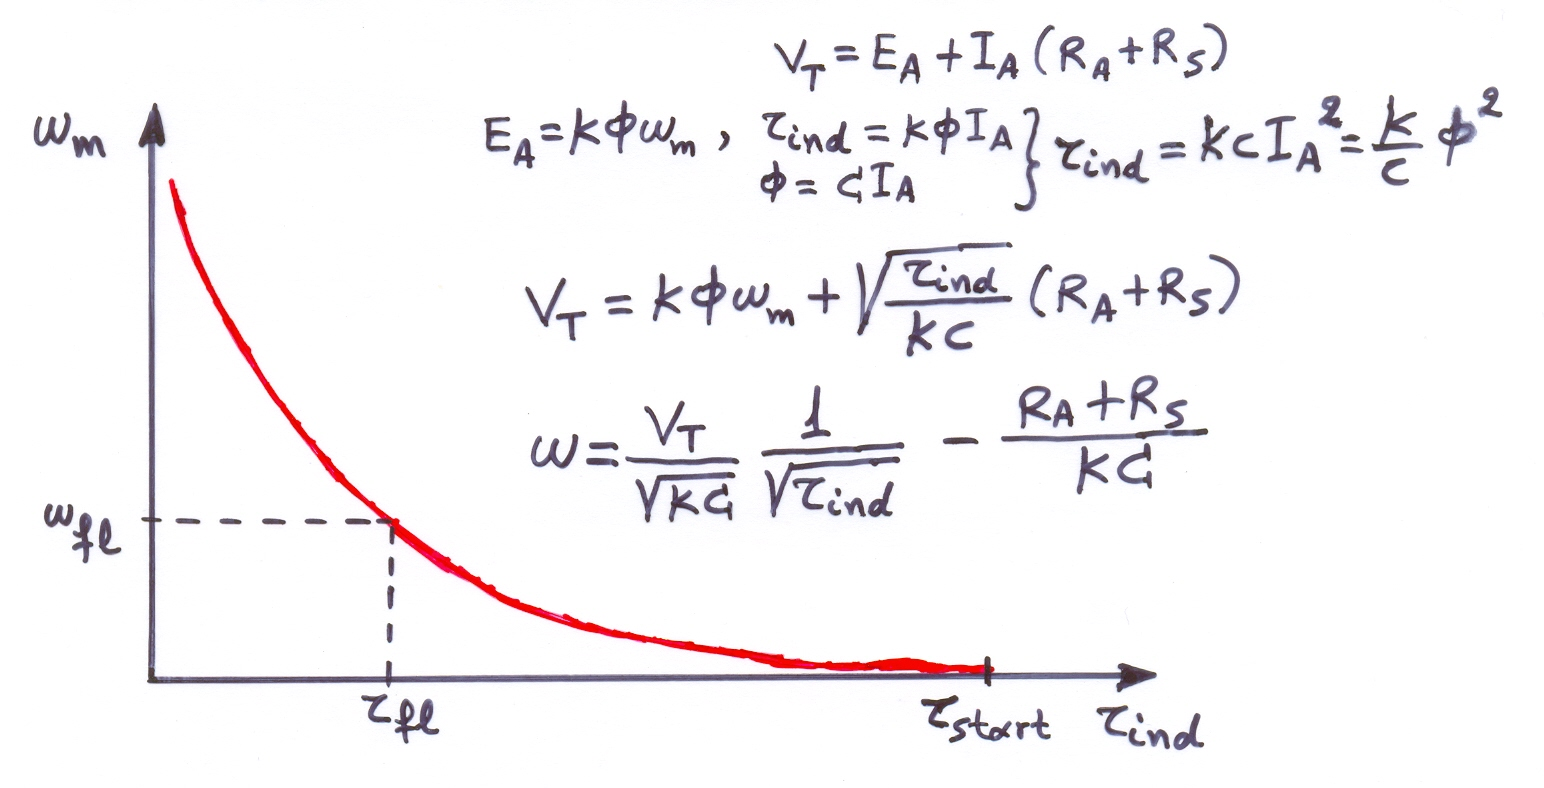 V_T = E_A + I_A (R_A + R_S)
ω_m
E_A = kϕω_m , τ_ind = kϕI_A } τ_ind = kcI_A² = k/c ϕ²
ϕ = cI_A
V_T = kϕω_m + √(τ_ind/kc) (R_A + R_S)
ω = V_T/√kc 1/√τ_ind - (R_A + R_S)/kc
ω_fl
τ_fl
τ_start
τ_ind